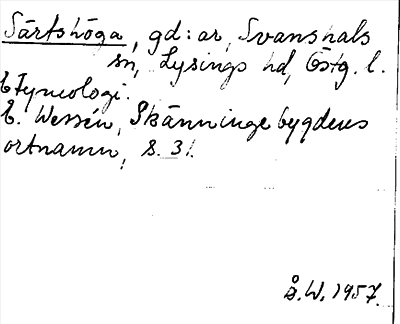 Särtshöga, gd:ar, Svanshals
sn, Lysings hd, Östg. l.
Etymologi.
E. Wessén, Skänningebygdens
ortnamn, s. 31.
Å.W. 1957.